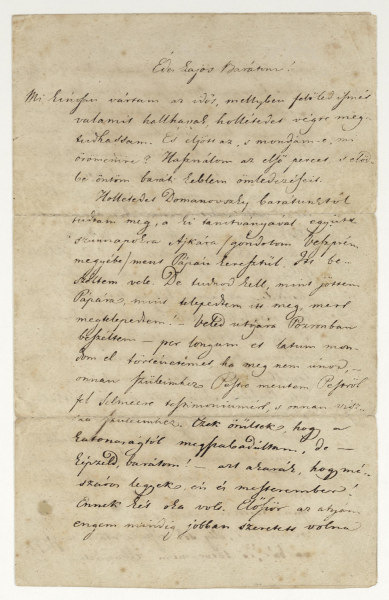 Édes Lajos Barátom!
Mi kínosan vártam az időt, mellyben felőled ismét
valamit hallhatnák hollétedet végre meg-
tudhassam. És eljött az, s mondjam-e, mi
örömemre? Használom az első percet s előd-
be öntöm baráti keblem ömledezéseit.
Holletedet Domanovszky barátunktól
tudtam meg, a ki tanítványával együtt
szünnapokra Ajkára /gondolom Veszprém
megyébe/ ment Pápán keresztűl. Itt be-
széltem vele. De tudnod kell, mint jöttem
Pápára, mint telepedtem itt meg, mert
megtelepedtem! – Veled utoljára Pozsonban
beszéltem – per longum et latum mon-
dom el történetemet ha meg nem unod, –
onnan szüleimhez mentem Pestről
fel Selmecre testimoniumért, s onnan visz-
sza szüleimhez. Ezek örültek, hogy a
katonaságtól megszabadúltam, de –
képzeld, barátom! – azt akarák, hogy mé-
száros legyek én és mesterember!
Ennek két oka volt. Először az atyám
engem mindig jobban szeretett vólna